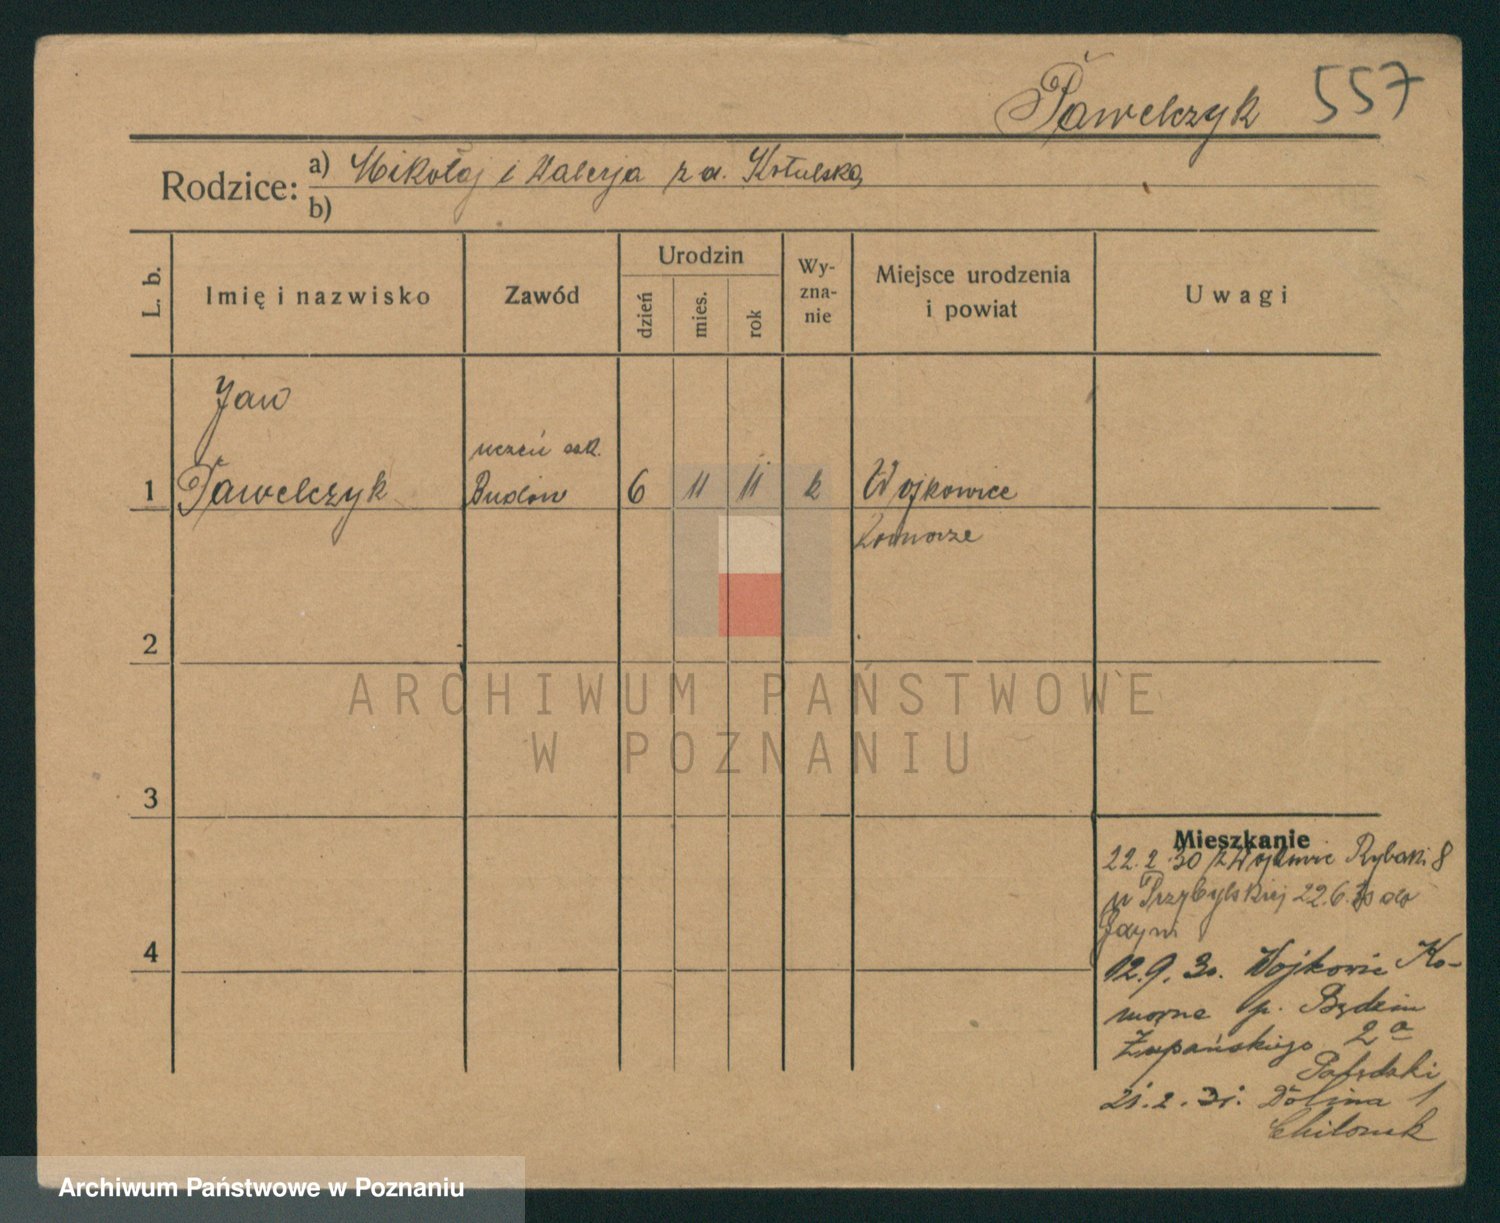 Pawelczyk 557
Rodzice: a) Mikołaj i Walerja z d. Kotulska
b)
L. b. Imię i nazwisko Zawód Urodzin dzień mies. rok Wy-zna-nie Miejsce urodzenia i powiat Uwagi
Jan
uczeń szk.
1 Pawelczyk Budow 6 11 11 k Wojkowice
Komorze
2
ARCHIWUM PAŃSTWOWE
W POZNANIU
3
Mieszkanie
22.2.30 z Wojkowic Rybaki 8
u Przybylskiej 22.6.30 do
Gdyni
4
12.9.30. Wojkowic Ko-
morne p. Będzin
Żupańskiego 2a
21.2.31. Dolina 1
Archiwum Państwowe w Poznaniu